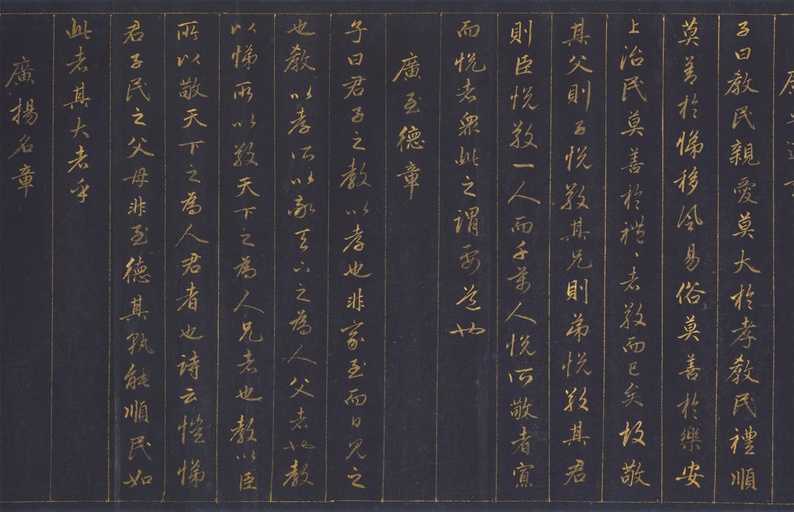 子曰教民親愛莫大於孝教民禮順
莫善於悌移風易俗莫善於樂安
上治民莫善於禮〻者敬而已矣故敬
其父則子悅敬其兄則弟悅敬其君
則臣悅敬一人而千萬人悅所敬者寡
而悅者衆此之謂要道也
廣至德章
子曰君子之教以孝也非家至而日見之
也教以孝所以敬天下之為人父者也教
以悌所以敬天下之為人兄者也教以臣
所以敬天下之為人君者也詩云愷悌
君子民之父母非至德其孰能順民如
此者其大者乎
廣揚名章